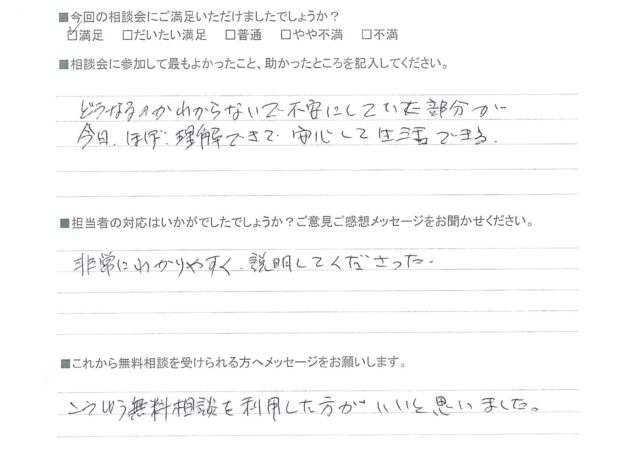 ■今回の相談会にご満足いただけましたでしょうか?
☑満足 □だいたい満足 □普通 □やや不満 □不満
■相談会に参加して最もよかったこと、助かったところを記入してください。
どうなるのかわからないで不安にしていた部分が
今日、ほぼ理解できて安心して生活できる。
■担当者の対応はいかがでしたでしょうか?ご意見ご感想メッセージをお聞かせください。
非常にわかりやすく、説明してくださった。
■これから無料相談を受けられる方へメッセージをお願いします。
こういう無料相談を利用した方がいいと思いました。